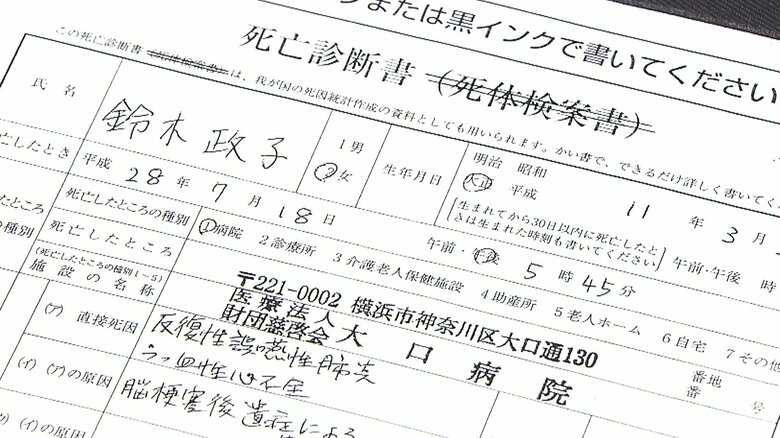 または黒インクで書いてください
死亡診断書（死体検案書）
この死亡診断書（死体検案書）は、我が国の死因統計作成の資料としても用いられます。かい書で、できるだけ詳しく書いてく
氏 名 鈴木 政子 1男 2女 生年月日 明治 昭和 大正 平成 11 年 3 月
生まれてから30日以内に死亡したと
きは生まれた時刻も書いてください 午前・午後 時
亡したとき 平成 28 年 7 月 18 日 午前・午後 5 時 45 分
死亡したところの種別 1病院 2診療所 3介護老人保健施設 4助産所 5老人ホーム 6自宅 7その他
死亡したところ 〒221-0002 横浜市神奈川区大口通130 番地
番 号
(死亡したところの種別1~5)
施設の名称 医療法人
財団慈啓会 大 口 病 院
(ア) 直接死因 反復性誤嚥性肺炎
うっ血性心不全
(イ) (ア)の原因 脳梗塞後遺症による
(イ)の原因